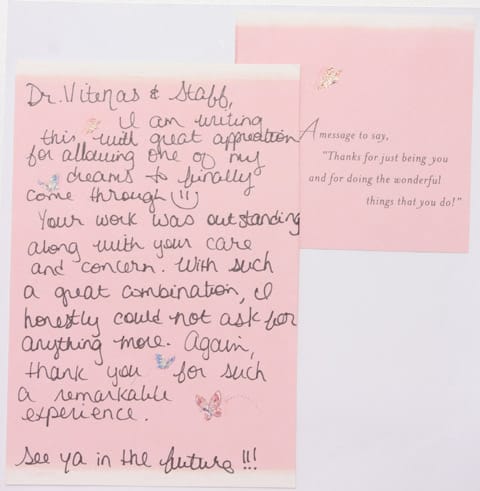 Dr. Vitenas & Staff,
I am writing
this with great appreciation
for allowing one of my
dreams to finally
come through!!
Your work was outstanding
along with your care
and concern. With such
a great combination, I
honestly could not ask for
anything more. Again,
thank you for such
a remarkable
experience.
See ya in the future!!!
A message to say,
"Thanks for just being you
and for doing the wonderful
things that you do!"